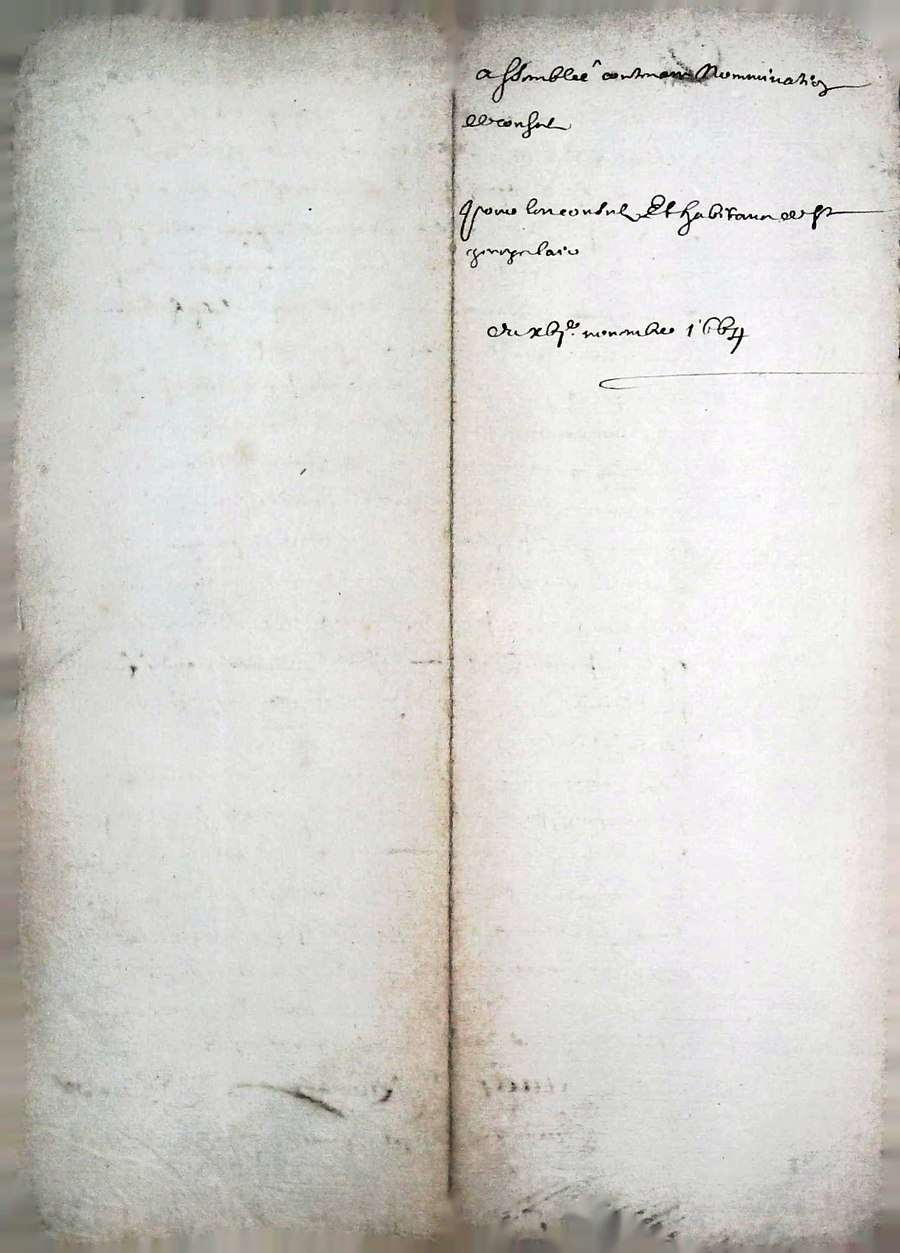 assemblee contenant Nommination
de consul
pour les consulz Et habitans de st
du xbj.e novembre 1664